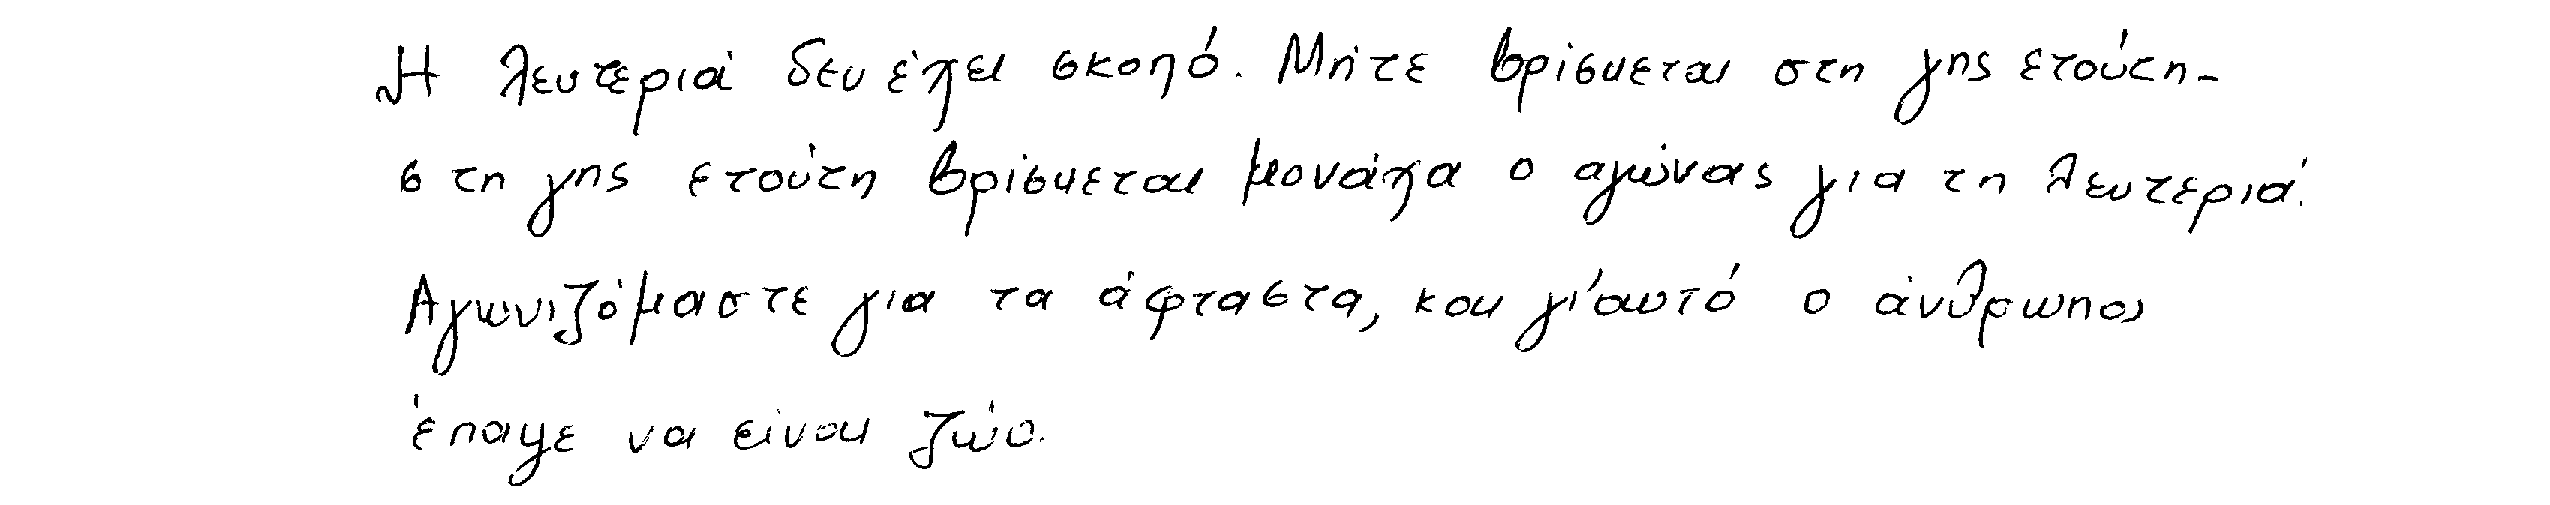 Η λευτεριά δεν έχει σκοπό. Μήτε βρίσκεται στη γης ετούτη -
στη γης ετούτη βρίσκεται μονάχα ο αγώνας για τη λευτεριά.
Αγωνιζόμαστε για τα άφταστα, και γι'αυτό ο άνθρωπος
έπαψε να είναι ζώο.